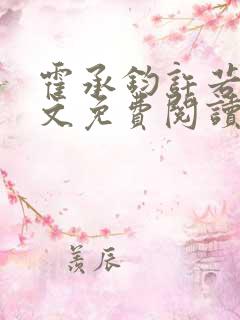 霍承鈞許若
文免費閱讀
羨辰